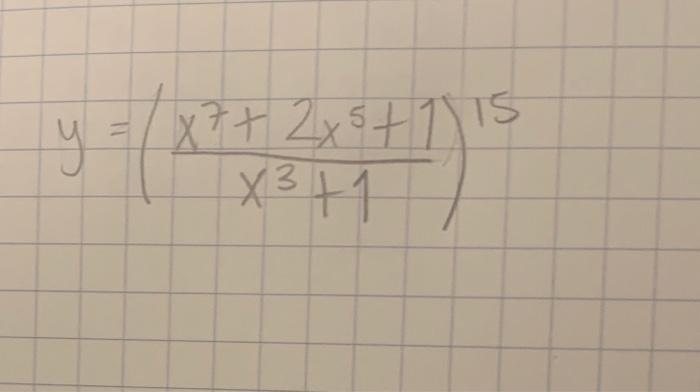 y = (x⁷ + 2x⁵ + 1 / x³ + 1)¹⁵